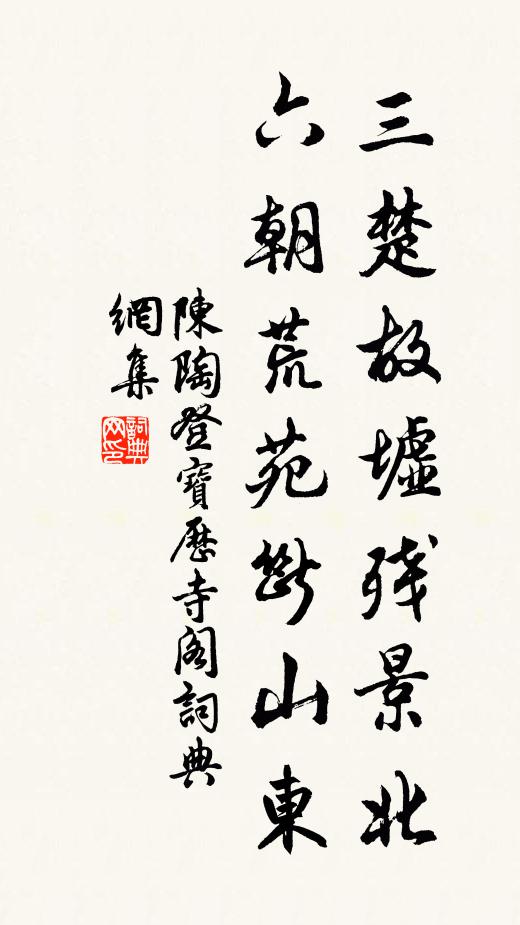 三楚故墟殘景北
六朝荒苑斷山東
陳陶登寶歷寺閣詞典
網集
詞典
网印